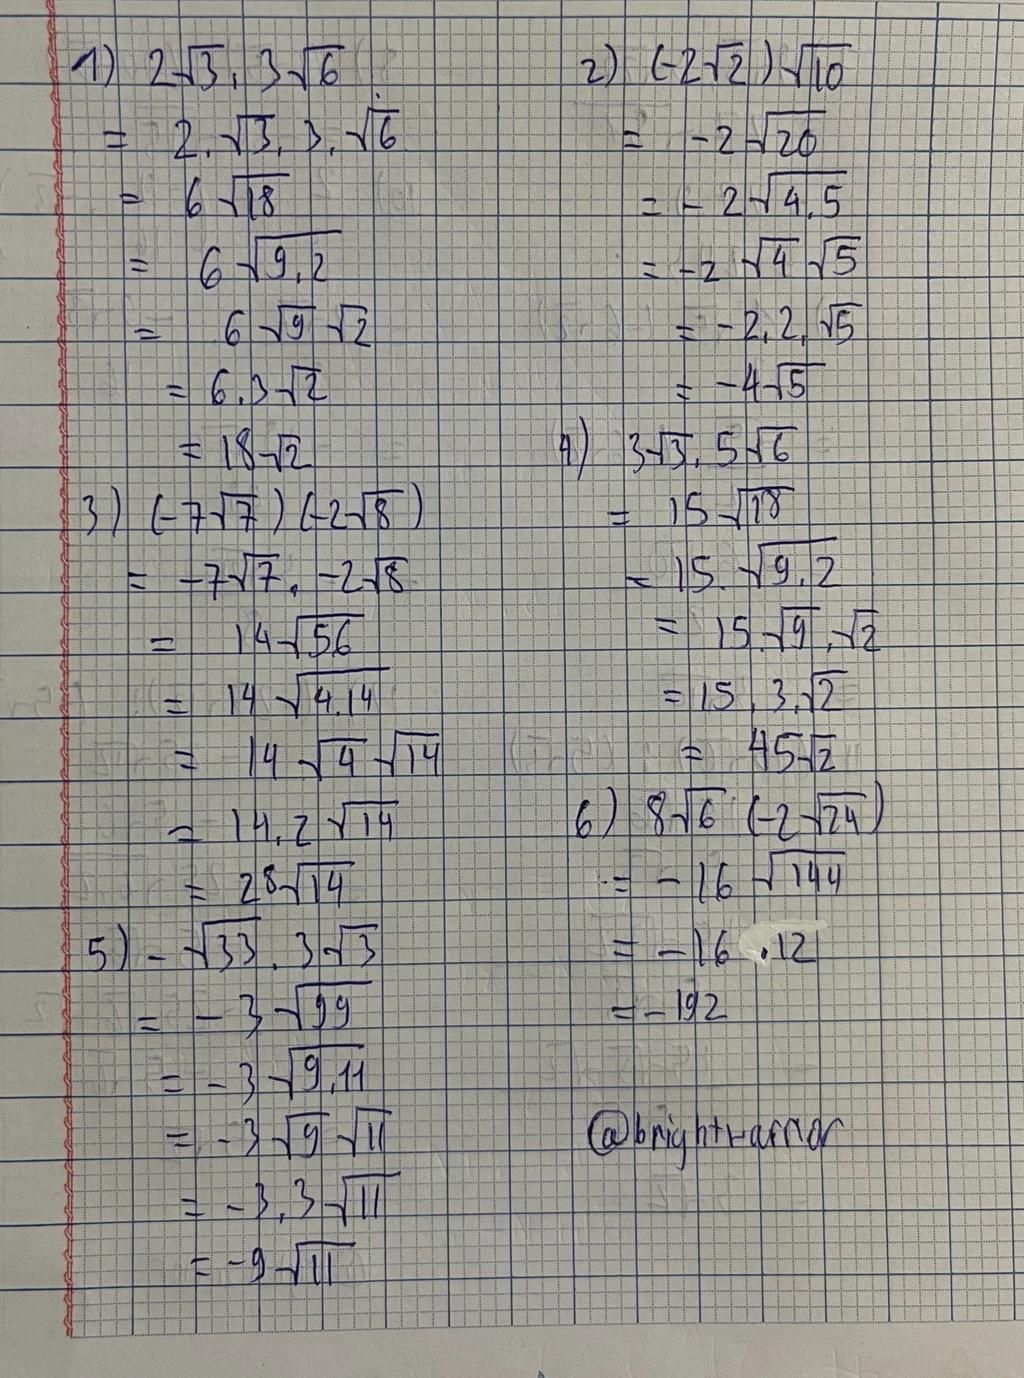 1) 2√3 . 3√6
= 2 . √3 . 3 . √6
= 6 √18
= 6 √9.2
= 6 √9 √2
= 6.3√2
= 18√2
3) (-7√7) (-2√8)
= -7√7 . -2√8
= 14√56
= 14 √4.14
= 14 √4 √14
= 14.2 √14
= 28√14
5) -√33 . 3√3
= -3 √99
= -3 √9.11
= -3 √9 √11
= -3.3 √11
= -9√11
2) (-2√2) √10
= -2√20
= -2√4.5
= -2 √4 √5
= -2.2.√5
= -4√5
4) 3√3 . 5√6
= 15 √18
= 15.√9.2
= 15.√9.√2
= 15.3.√2
= 45√2
6) 8√6 (-2√24)
= -16 √144
= -16 .12
= -192
@brightwarrior